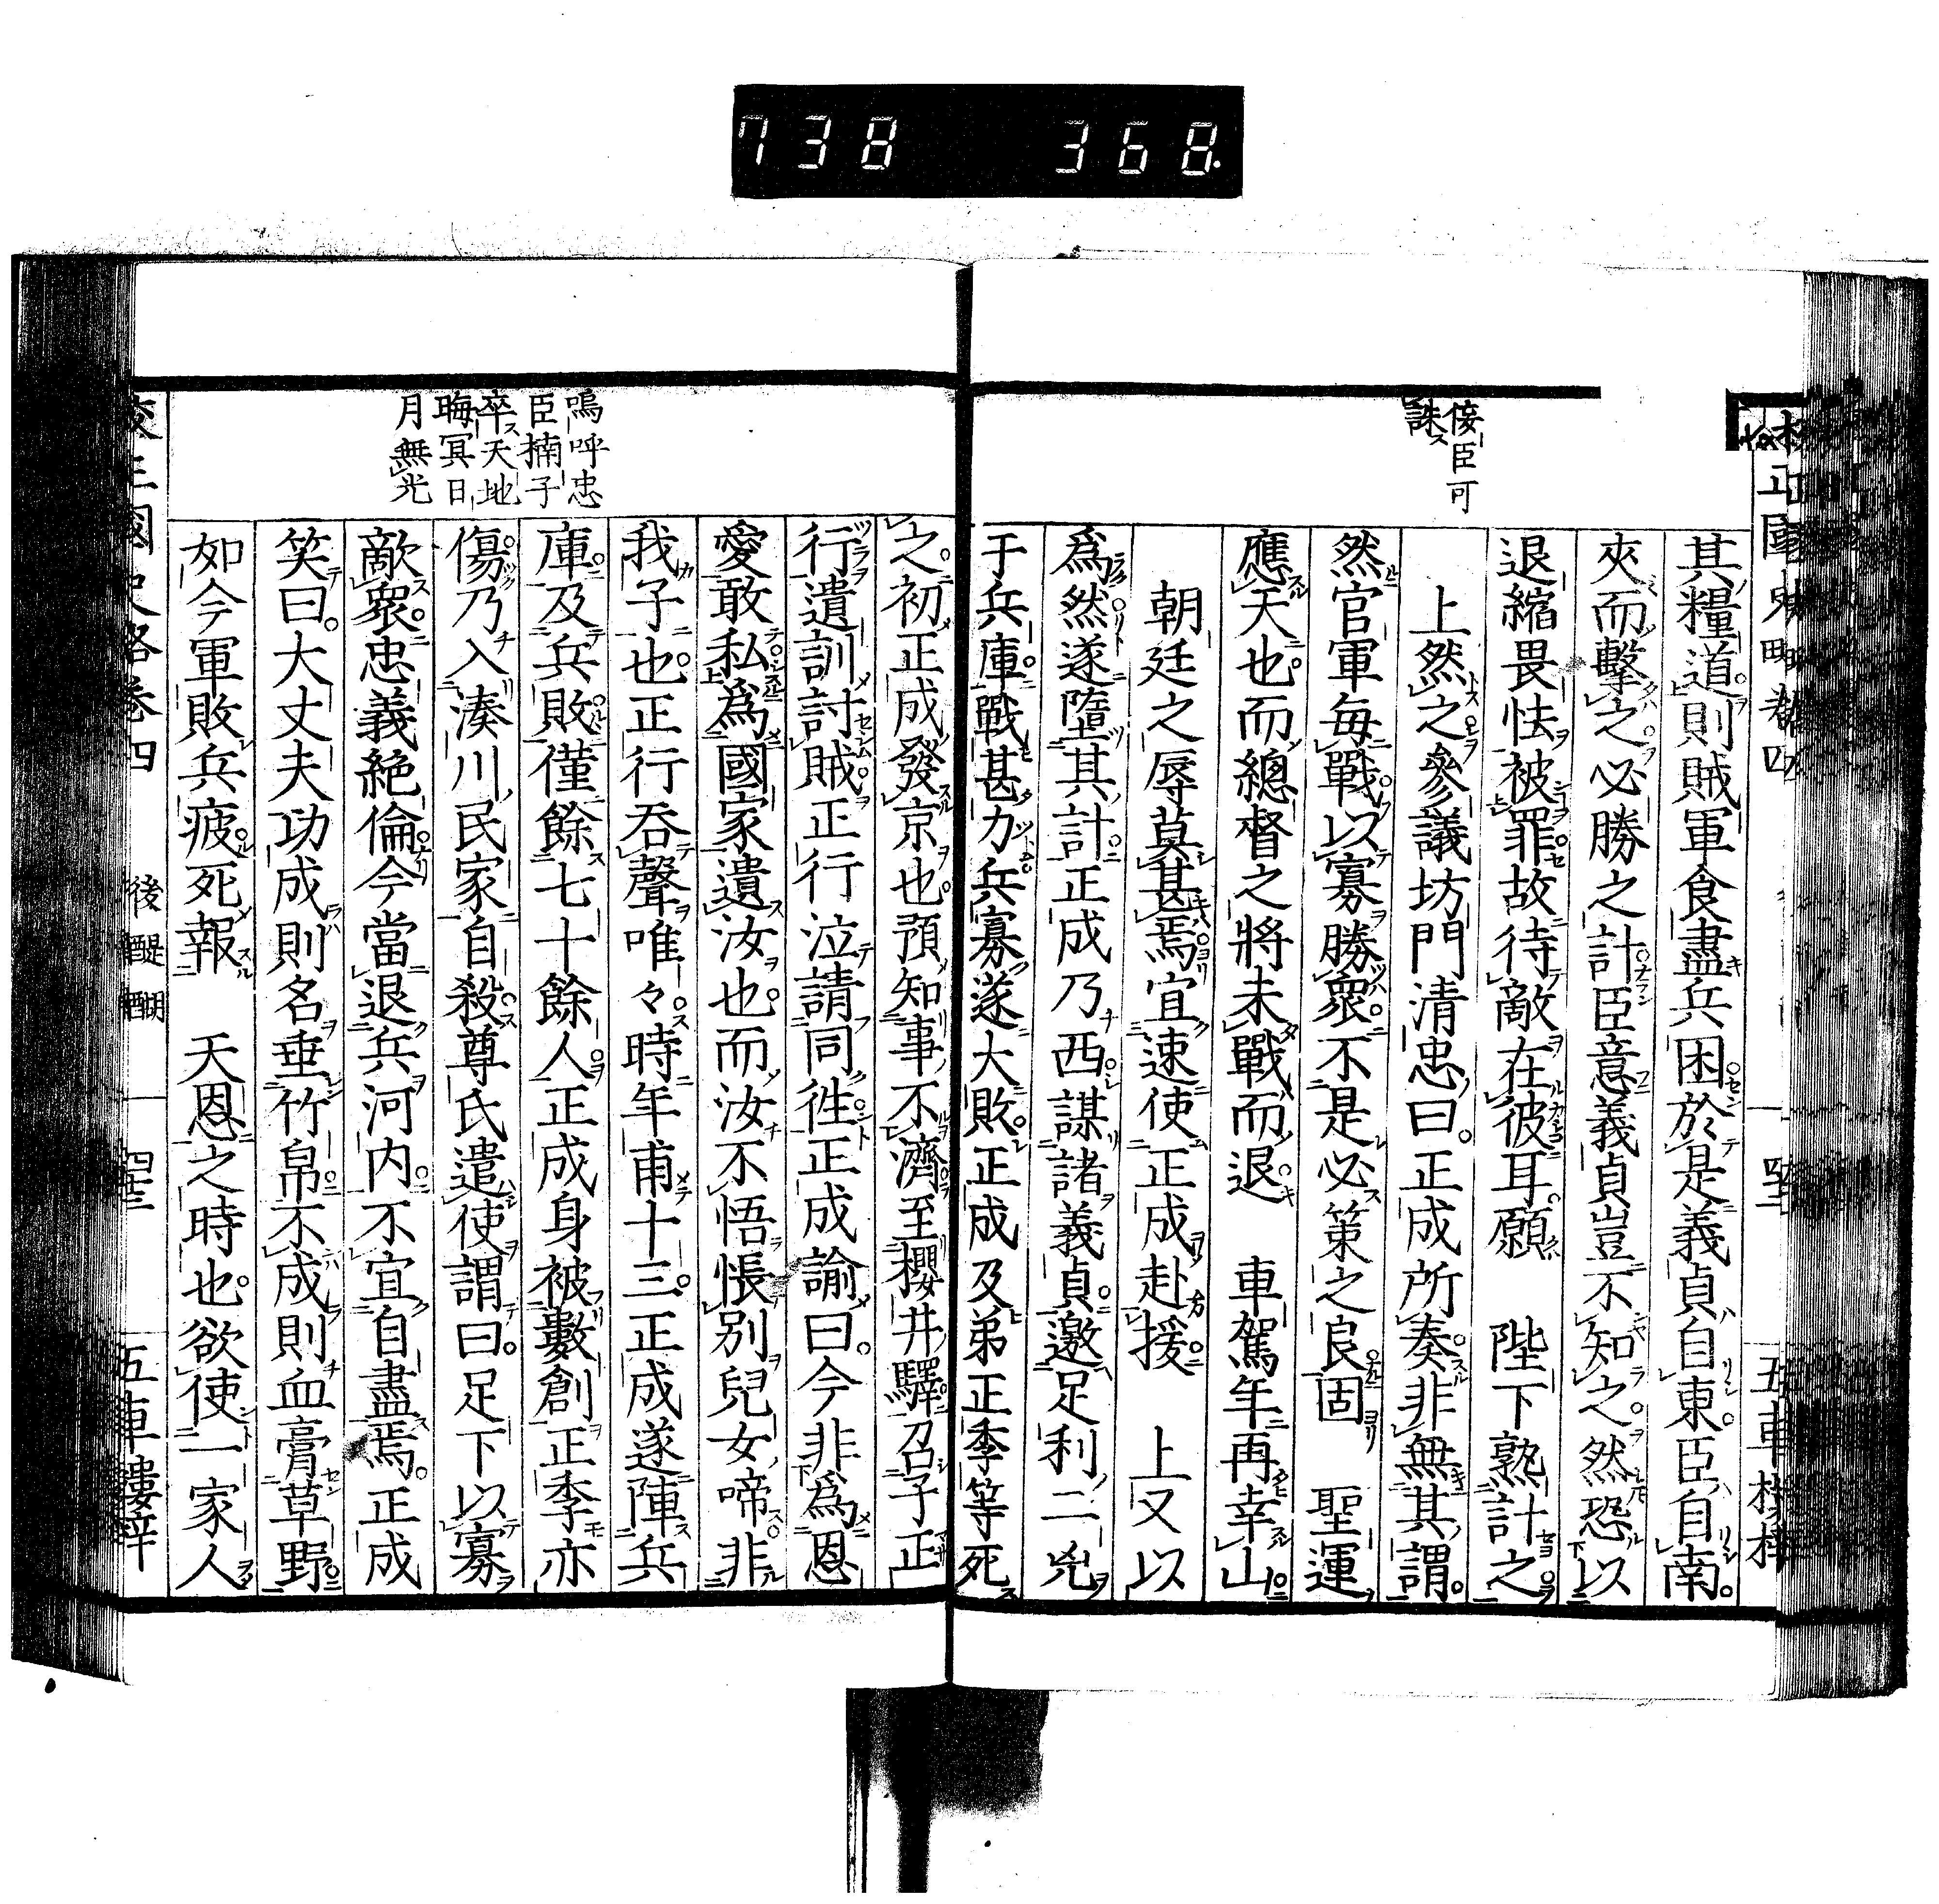 738 368.
佞臣可
誅
其糧道則賊軍食盡兵困於是義貞自東臣自南
夾而擊之必勝之計臣意義貞豈不知之然恐以
退縮畏怯被罪故待敵在彼耳願 陛下熟計之
上然之參議坊門清忠曰正成所奏非無其謂
然官軍每戰以寡勝衆不是必策之良固 聖運
應天也而總督之將未戰而退 車駕年再幸山
朝廷之辱莫甚焉宜速使正成赴援 上又以
爲然遂墮其計正成乃西謀諸義貞邀足利二兇
于兵庫戰甚力兵寡遂大敗正成及弟正季等死
嗚呼忠
臣楠子
卒天地
晦冥日
月無光
之初正成發京也預知事不濟至櫻井驛召子正
行遺訓討賊正行泣請同徃正成諭曰今非爲恩
愛敢私爲國家遺汝也而汝不悟悵別兒女啼非
我子也正行吞聲唯々時年甫十三正成遂陣兵
庫及兵敗僅餘七十餘人正成身被數創正季亦
傷乃入湊川民家自殺尊氏遣使謂曰足下以寡
敵衆忠義絶倫今當退兵河内不宜自盡焉正成
笑曰大丈夫功成則名垂竹帛不成則血膏草野
如今軍敗兵疲死報 天恩之時也欲使一家人
國史略卷四 後醍醐 五車樓梓